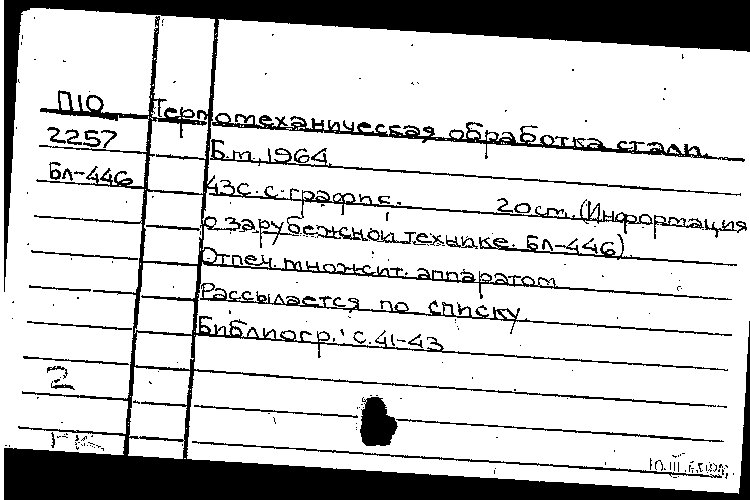 П10 Термомеханическая обработка стали.
2257 Б.м., 1964.
Бл-446 43с. с график. 20 ст. (Информация
о зарубежной технике. Бл-446).
Отпеч. множит. аппаратом
Рассылается по списку.
Библиогр.: с. 41-43
2
ГК